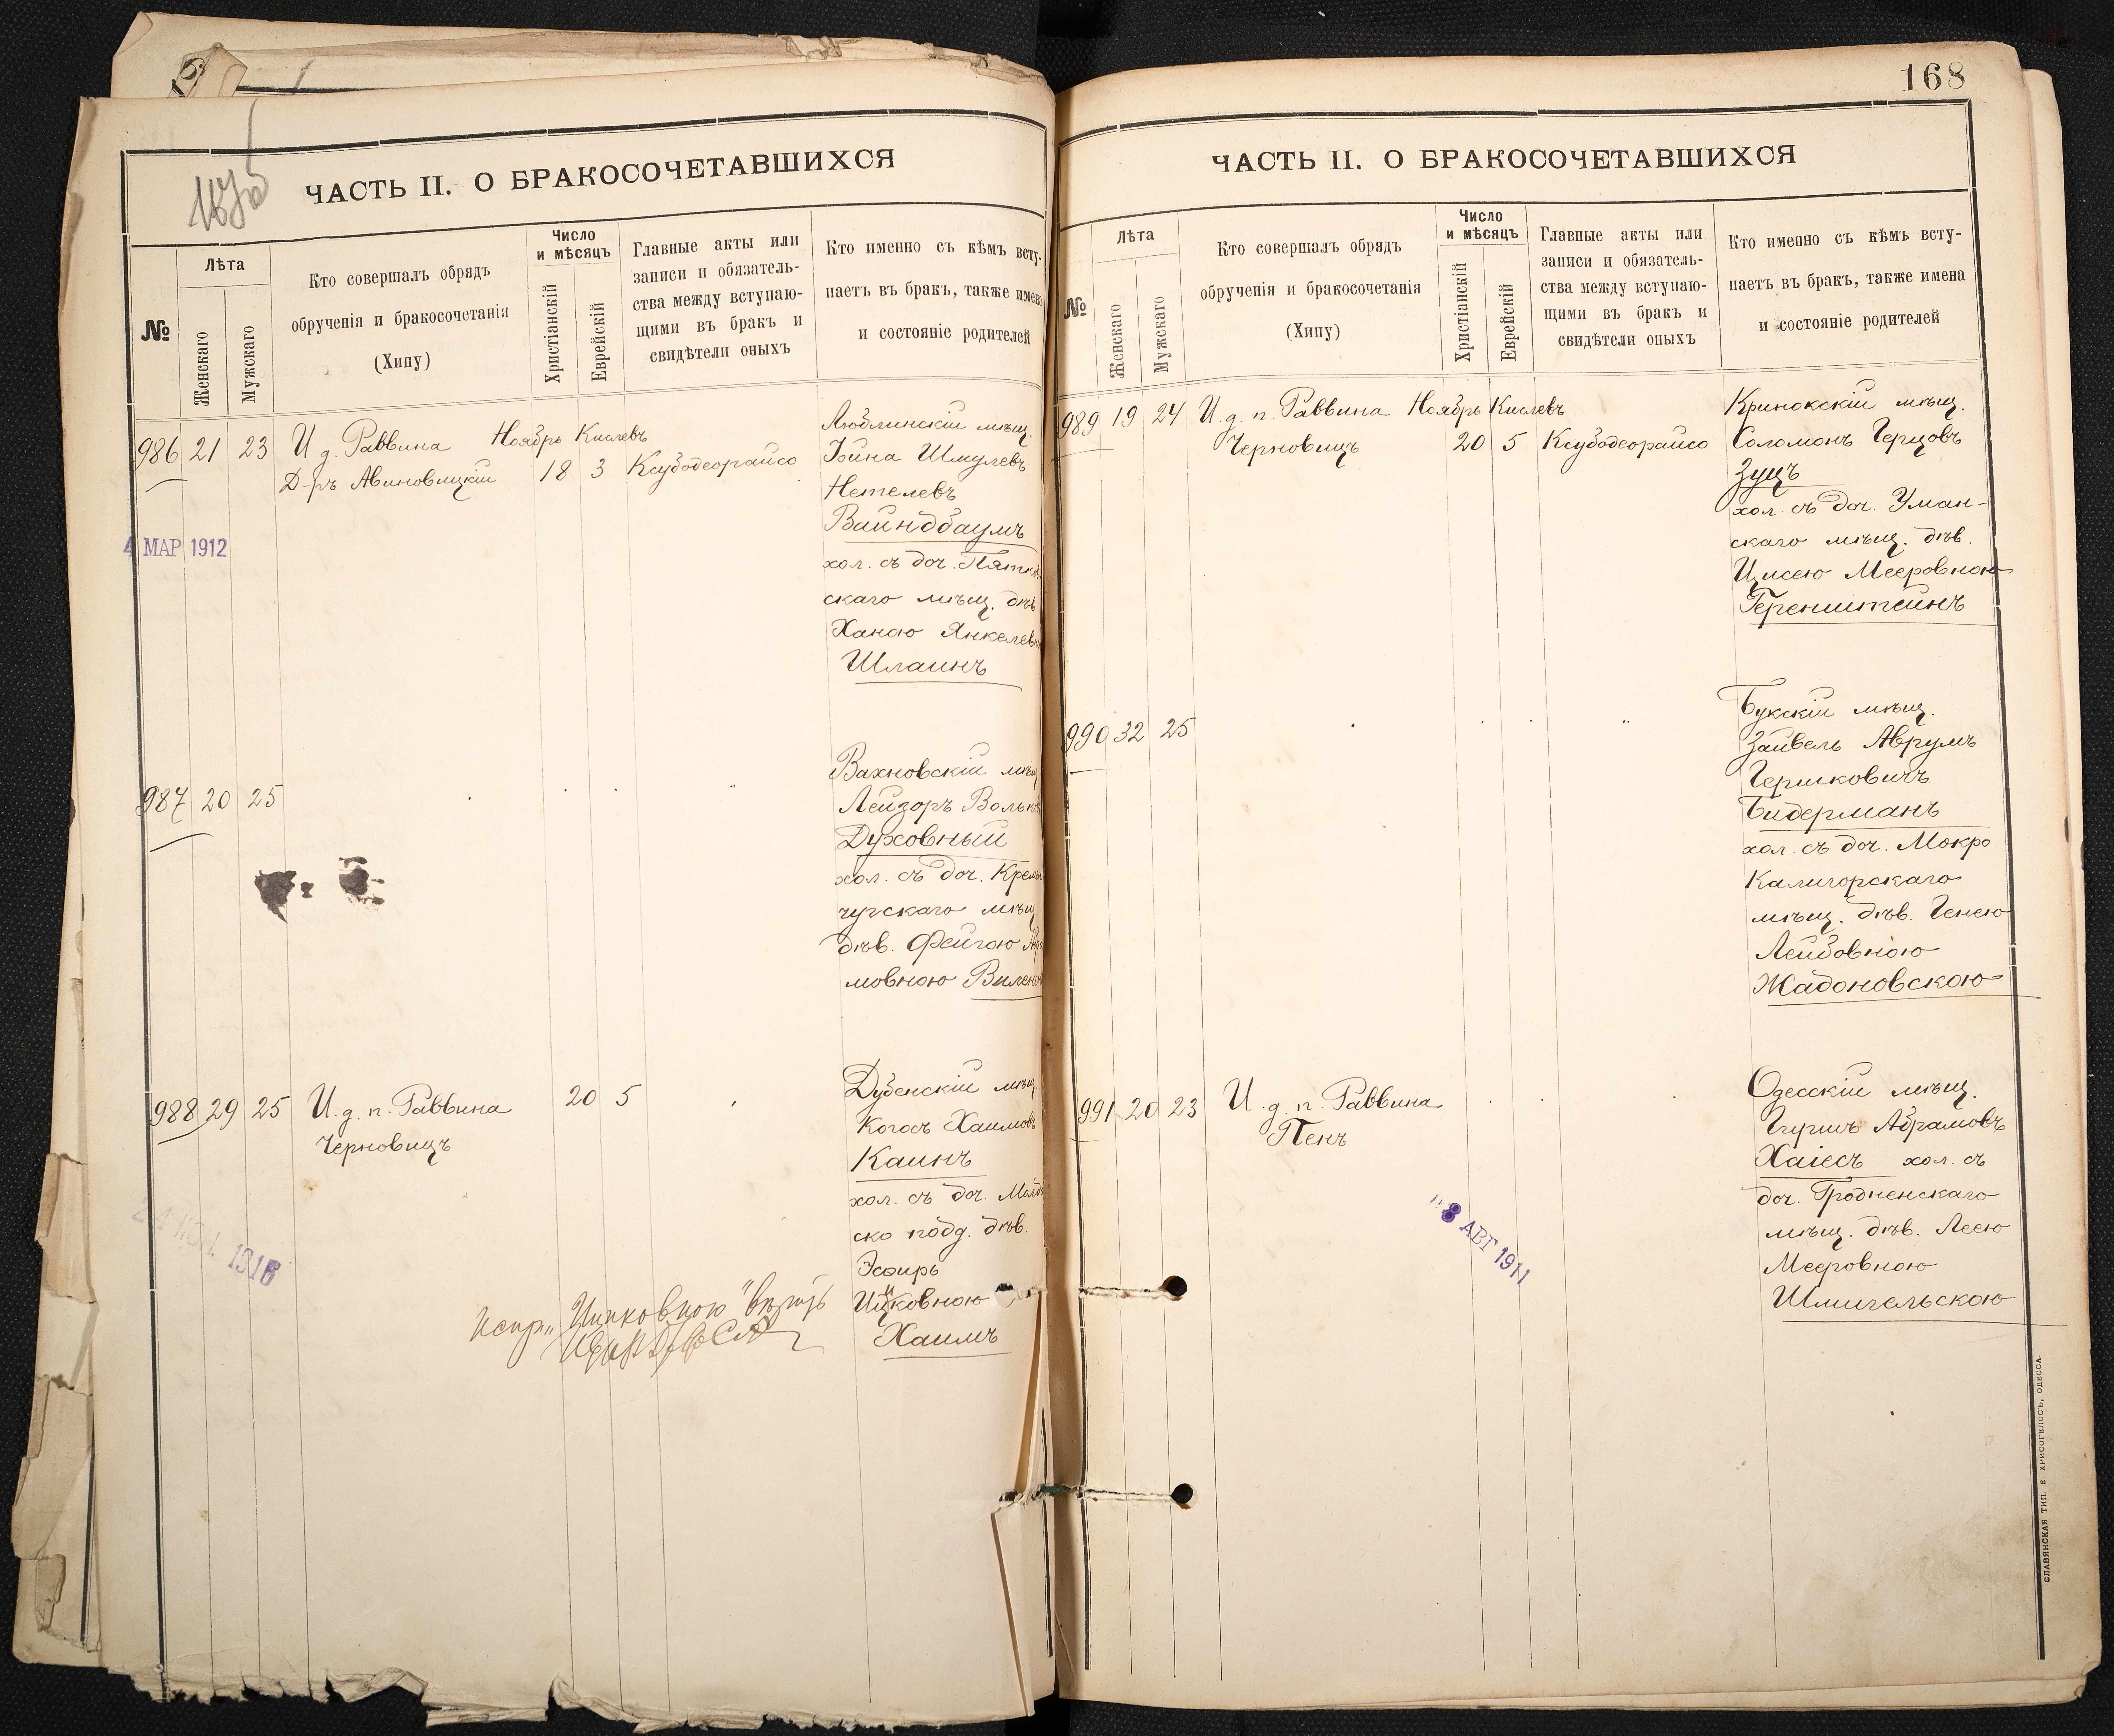 ЧАСТЬ II. О БРАКОСОЧЕТАВШИХСЯ
№
Лѣта
Женскаго
Мужскаго
Кто совершалъ обрядъ
обрученія и бракосочетанія
(Хипу)
Число
и мѣсяцъ
Христіанскій
Еврейскій
Главные акты или
записи и обязатель-
ства между вступаю-
щими въ бракъ и
свидѣтели оныхъ
Кто именно съ кѣмъ всту-
паетъ въ бракъ, также имена
и состояніе родителей
986 21 23 И д. Раввина Ноябрь Кислевъ
Д-ръ Авиновицкій 18 3 Ксубодеорайсо
Люблинскій мѣщ.
Іойна Шмулевъ
Нетелевъ
Вайндбаумъ
хол. съ доч. Пятк
скаго мѣщ. дѣв
Ханою Янкелев
Шлаинъ
4 МАР 1912
987 20 25
Вахновскій мѣщ
Лейзоръ Вольк
Духовный
хол. съ доч. Крем
чугскаго мѣщ
дѣв. Фейгою
мовною Вилен
988 29 25 И. д. п. Раввина 20 5
Черновицъ
Дубенскій мѣщ.
Когосъ Хаимовъ
Каинъ
хол. съ доч. Молд
ско подд. дѣв.
Эсѳирь
Ицковною
Хаимъ
Испр. „Ицковною" вѣрить
168
ЧАСТЬ II. О БРАКОСОЧЕТАВШИХСЯ
№
Лѣта
Женскаго
Мужскаго
Кто совершалъ обрядъ
обрученія и бракосочетанія
(Хипу)
Число
и мѣсяцъ
Христіанскій
Еврейскій
Главные акты или
записи и обязатель-
ства между вступаю-
щими въ бракъ и
свидѣтели оныхъ
Кто именно съ кѣмъ всту-
паетъ въ бракъ, также имена
и состояніе родителей
989 19 24 И. д. п. Раввина Ноябрь Кислевъ
Черновицъ 20 5 Ксубодеорайсо
Кринокскій мѣщ.
Соломонъ Герцовъ
Зущъ
хол. съ доч. Уман-
скаго мѣщ. дѣв.
Цисею Мееровною
Геренштейнъ
990 32 25
Букскій мѣщ.
Зайвель Аврумъ
Гершковичъ
Бидерманъ
хол. съ доч. Мокро
Калигорскаго
мѣщ. дѣв. Генею
Лейбовною
Жадоновскою
991 20 23 И. д. п. Раввина
Пенъ
Одесскій мѣщ.
Гиршъ Абрамовъ
Хаіесъ хол. съ
доч. Гродненскаго
мѣщ. дѣв. Леею
Мееровною
Шмигельскою
8 АВГ 1911
СЛАВЯНСКАЯ ТИП. Е. ХРИСОГЕЛОСЪ, ОДЕССА.